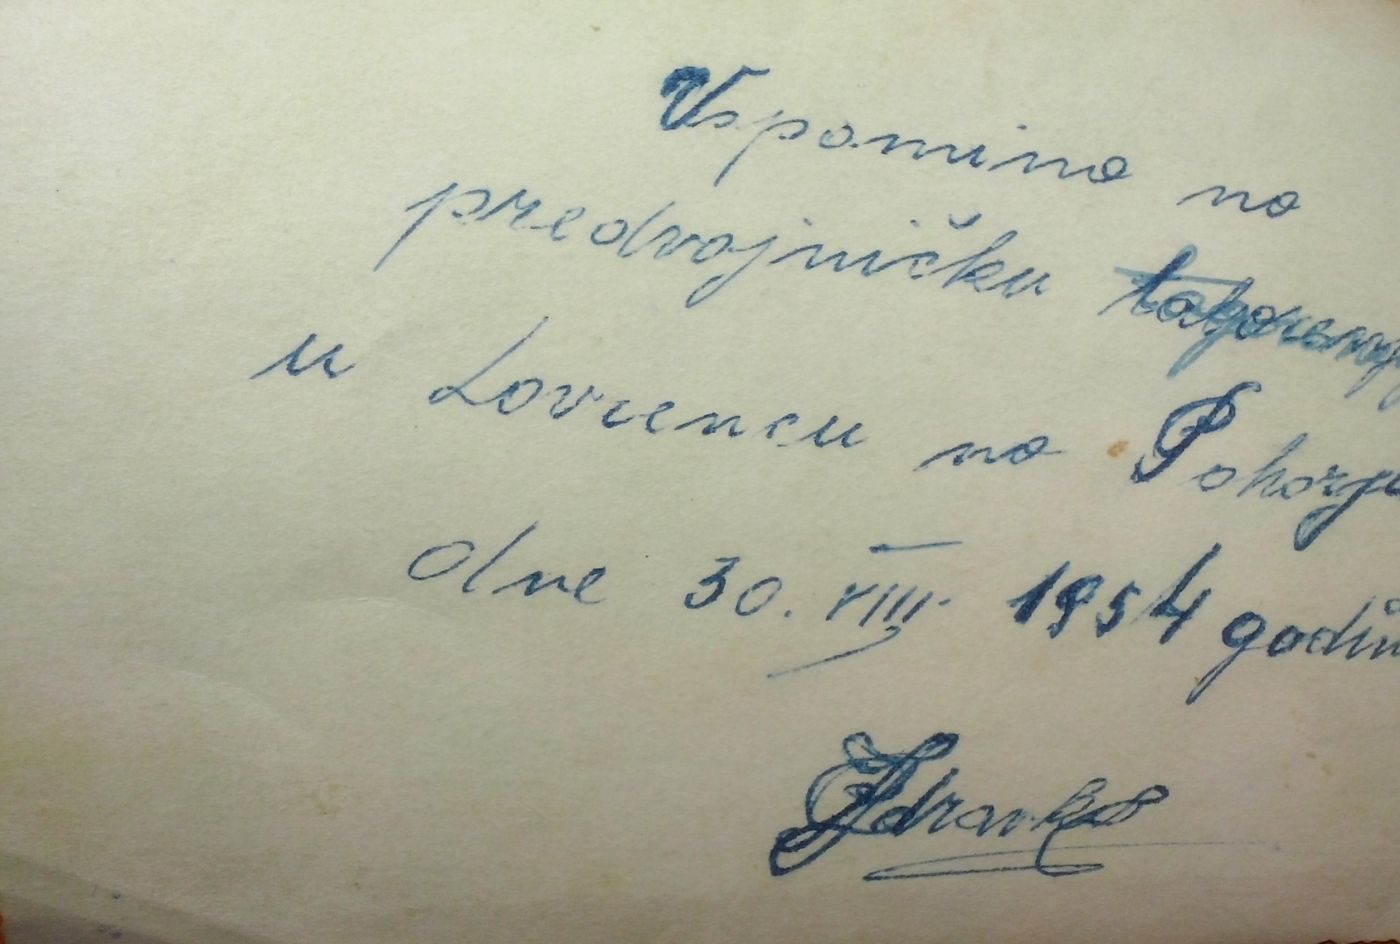 Vspomina na
predvojničku
u Lovrencu na Pohorju
dne 30. VIII. 1954 godin
Zdravko